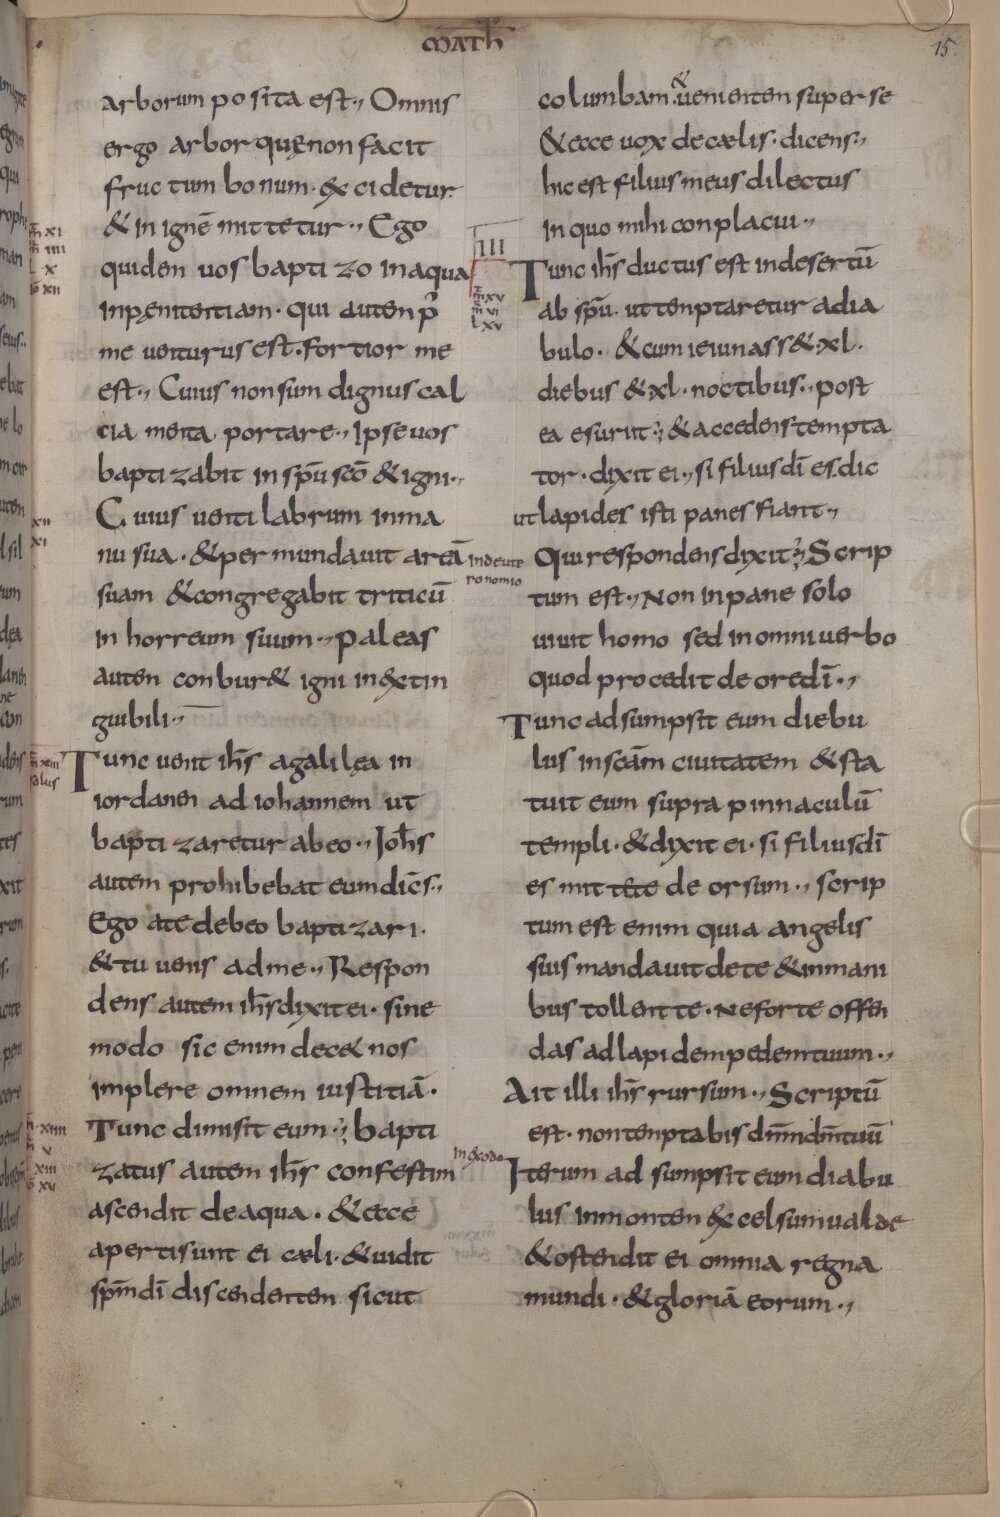 MATH
15.
arborum posita est·, Omnis
ergo arbor quęnon facit
fructum bonum· excidetur·
& in ignē mittetur·, Ego
quidem uos baptizo inaqua
inpęnitentiam· qui autem p̄
me uenturus est· fortior me
est·, Cuius nonsum dignus cal
cia menta portare·, Ipse uos
baptizabit in sp̄u sc̄o & igni·,
Cuius uentilabrum inma
nu sua· & permundauit areā
suam & congregabit triticū
in horreum suum·, paleas
autem conbur& igni inextin
guibili·,
Tunc uenit ih̄s agalilea in
iordanen ad iohannem ut
baptizaretur abeo·, Ioh̄s
autem prohibebat eum dicēs·,
Ego ate debeo baptizari·
& tu uenis adme·, Respon
dens autem ih̄s dixit ei· sine
modo sic enim dec& nos
implere omnem iustitiā·
Tunc dimisit eum·, bapti
zatus autem ih̄s confestim
ascendit deaqua· & ecce
aperti sunt ei cæli· & uidit
sp̄m dī discendentem sicut
m̄ xi
m̄ iiii
l x
iō xii
xii
xi
m̄ xiii
solus
m̄ xiiii
v
xiii
iō xv
columbam· & uenientem super se
& ecce uox decælis· dicens·,
hic est filius meus dilectus
in quo mihi conplacui·,
III
Tunc ih̄s ductus est indesertū
ab sp̄u· ut temptaretur adia
bulo· & cum ieiunass& xl·
diebus & xl· noctibus·, post
ea esuriit·, & accedens tempta
tor· dixit ei·, si filius dī es· dic
ut lapides isti panes fiant·,
Qui respondens dixit·, Scrip
tum est·, Non inpane solo
uiuit homo sed in omni uerbo
quod procedit de ore dī·,
Tunc adsumpsit eum diebu
lus in sc̄am ciuitatem & sta
tuit eum supra pinnaculū
templi· & dixit ei· si filius dī
es mitte te de orsum·, scrip
tum est enim quia angelis
suis mandauit dete & inmani
bus tollent te· ne forte offen
das ad lapidem pedem tuum·,
Ait illi ih̄s rursum·, Scriptū
est· non temptabis dn̄m dm̄ tuū
Iterum ad sumpsit eum diabu
lus inmontem excelsum ualde
& ostendit ei omnia regna
mundi· & gloriā eorum·,
m̄ xv
m̄ vi
l xv
indeute
ronomio
in exodo